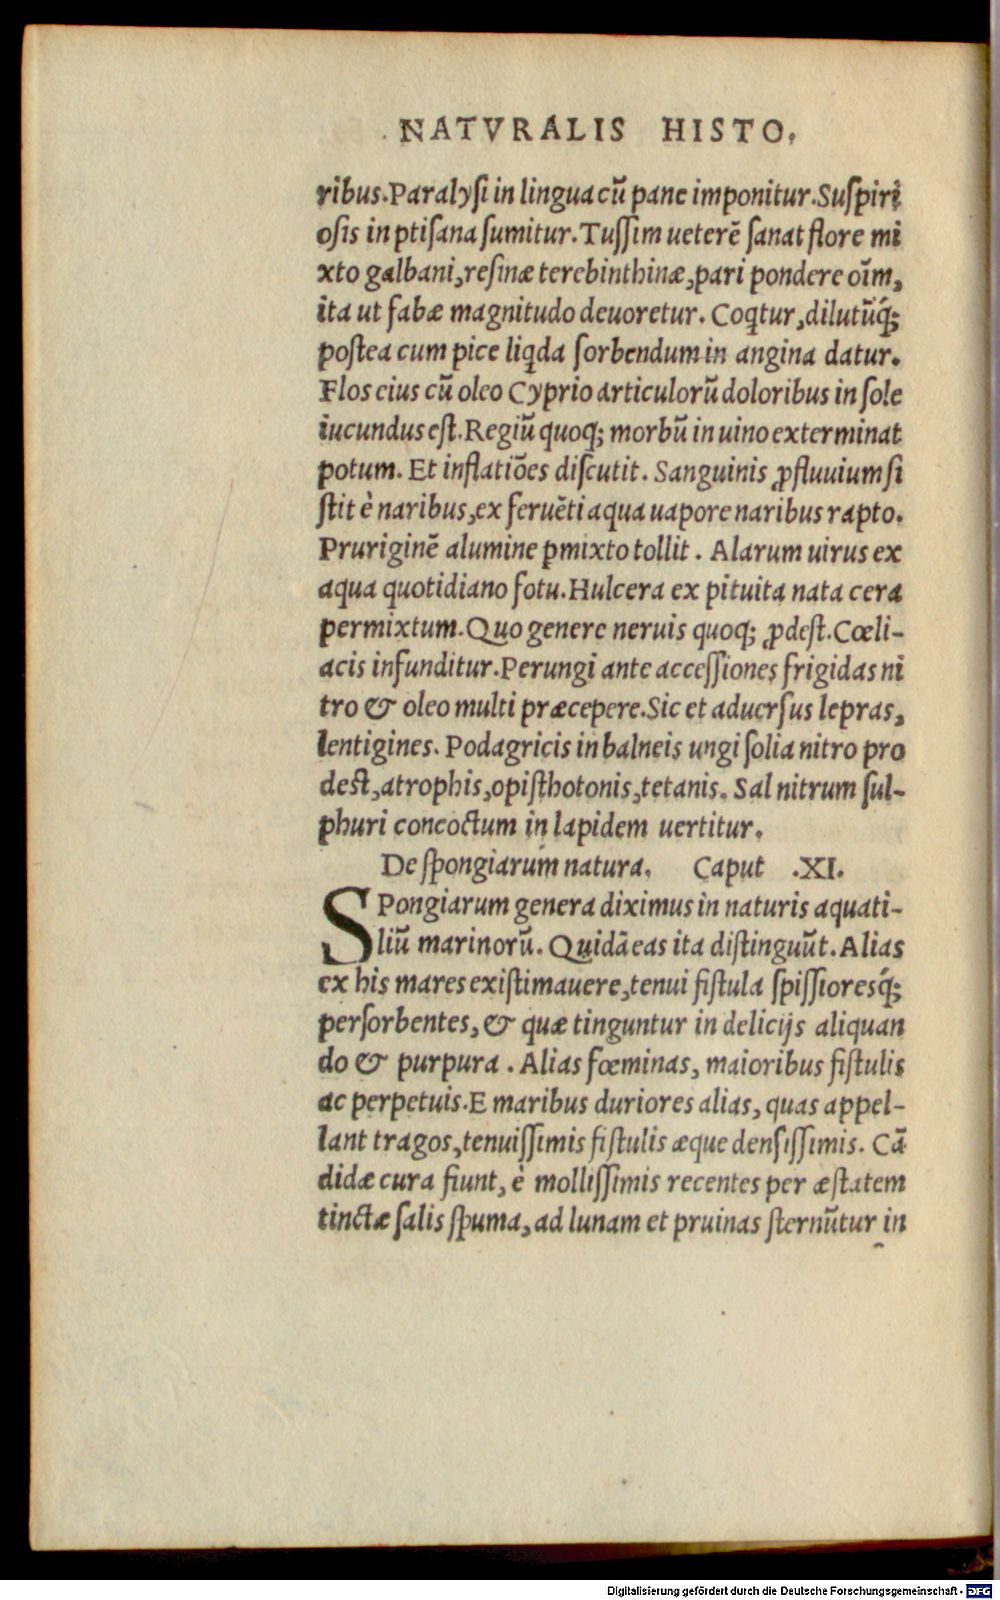 NATVRALIS HISTO.
ribus. Paralysi in lingua cũ pane imponitur. Suspiri
osis in ptisana sumitur. Tussim ueterẽ sanat flore mi
xto galbani, resinæ terebinthinæ, pari pondere oĩm,
ita ut fabæ magnitudo deuoretur. Coqtur, dilutũq́;
postea cum pice liqda sorbendum in angina datur.
Flos eius cũ oleo Cyprio articulorũ doloribus in sole
iucundus est. Regiũ quoq; morbũ in uino exterminat
potum. Et inflatiões discutit. Sanguinis ꝓfluuium si
stit è naribus, ex feruẽti aqua uapore naribus rapto.
Pruriginẽ alumine pmixto tollit. Alarum uirus ex
aqua quotidiano fotu. Hulcera ex pituita nata cera
permixtum. Quo genere neruis quoq; ꝓdest. Cœli-
acis infunditur. Perungi ante accessiones frigidas ni
tro & oleo multi præcepere. Sic et aduersus lepras,
lentigines. Podagricis in balneis ungi solia nitro pro
dest, atrophis, opisthotonis, tetanis. Sal nitrum sul-
phuri concoctum in lapidem uertitur.
De spongiarum natura. Caput .XI.
SPongiarum genera diximus in naturis aquati-
liũ marinorũ. Quidã eas ita distinguũt. Alias
ex his mares existimauere, tenui fistula spissioresq́;
persorbentes, & quæ tinguntur in delicijs aliquan
do & purpura. Alias fœminas, maioribus fistulis
ac perpetuis. E maribus duriores alias, quas appel-
lant tragos, tenuissimis fistulis æque densissimis. Cã
didæ cura fiunt, è mollissimis recentes per æstatem
tinctæ salis spuma, ad lunam et pruinas sternũtur in
Digitalisierung gefördert durch die Deutsche Forschungsgemeinschaft - DFG